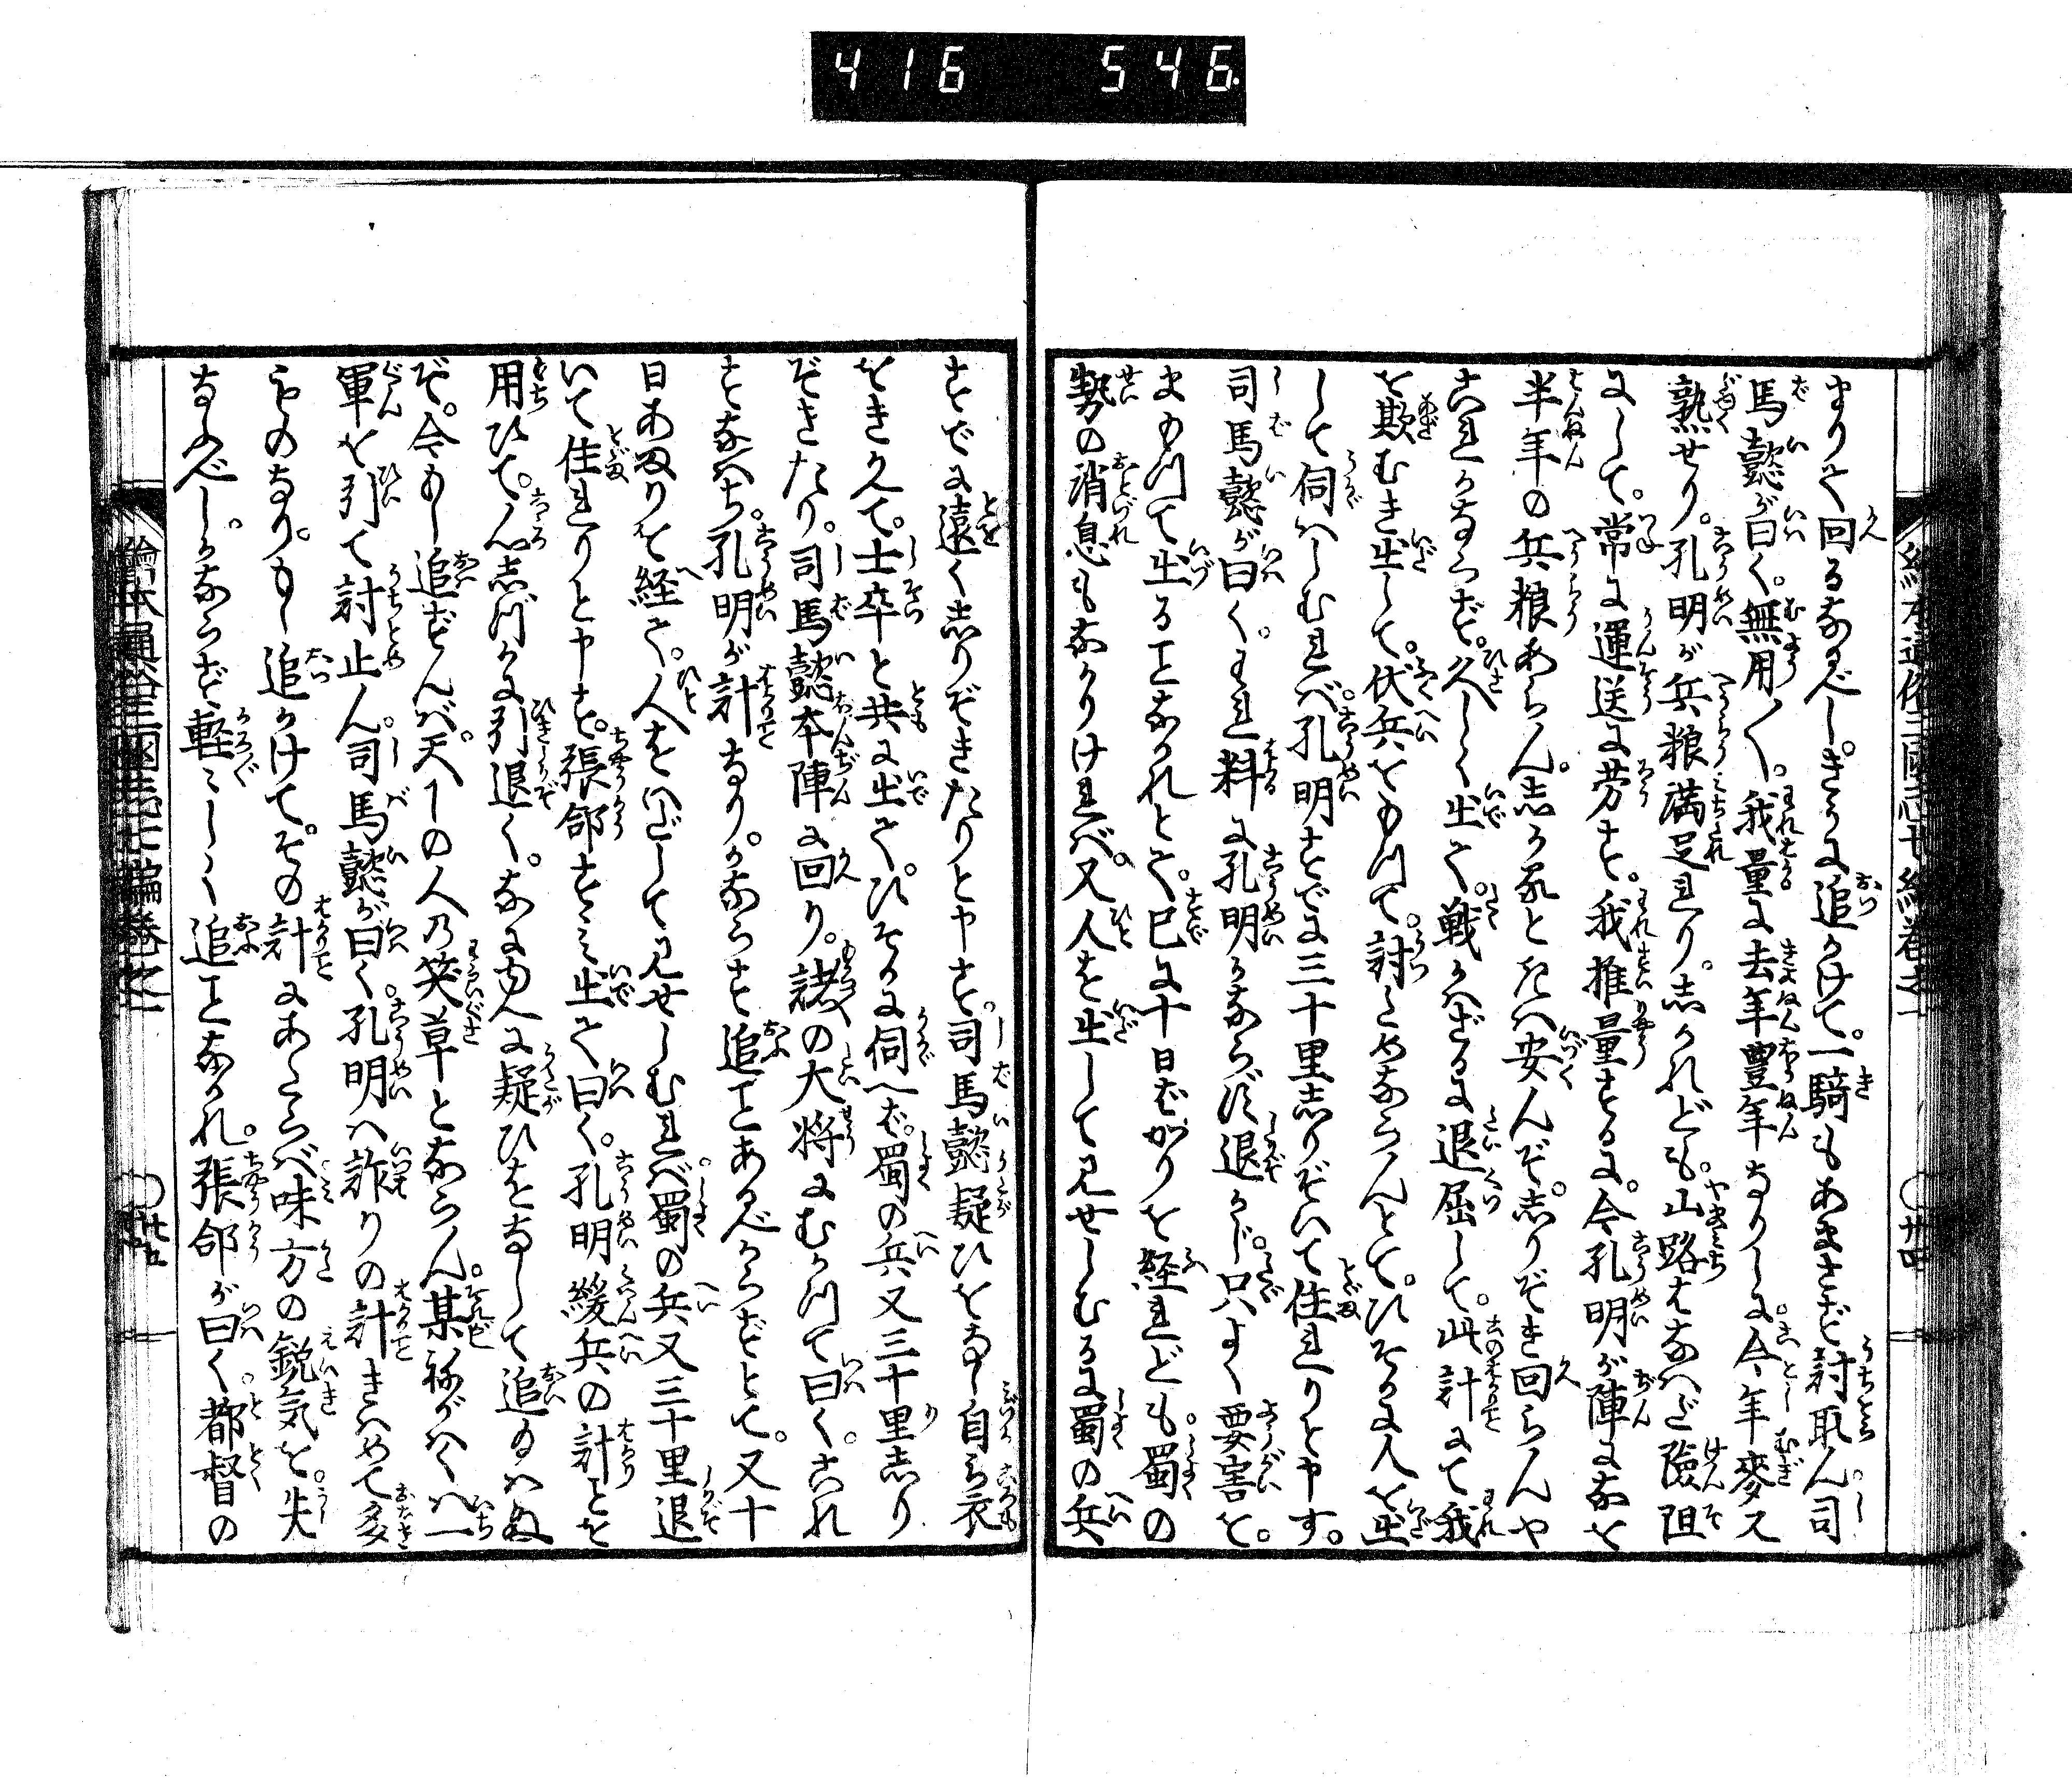 416 546.
絵本通俗三國志七編巻之一
廿四
まりて回るなるべし。きうに追かけて。一騎もあまさず討取ん。司
馬懿が曰く。無用〳〵。我量に去年豊年なりしに。今年麥又
熟せり。孔明が兵粮満足れり。しかれども。山路はなはだ險阻
にして。常に運送に労す。我推量するに。今孔明が陣になを
半年の兵粮あらん。しかるをたへ安んぞ。しりぞき回らんや
これかならず。久しく出て。戦かはざるに退屈して。此計にて我
を欺むき出して。伏兵をもつて。討とめならんとて。ひそかに人を出
して伺はしむれば。孔明すでに三十里しりぞいて住れりと申す。
司馬懿が曰く。これ料に孔明かならず退かじ。只よく要害を。
まもつて出ることなかれとて。已に十日ばかりを経れども。蜀の
勢の消息もなかりければ。又人を出して見せしむるに蜀の兵
すでに遠くしりぞきたりと申す。司馬懿疑ひをなし自ら衣
をきかへて。士卒と共に出て。ひそかに伺へば。蜀の兵又三十里しり
ぞきたり。司馬懿本陣に回り。諸の大将にむかつて曰く。これ
すなはち。孔明が計なり。かならず追ことあるべからずとて。又十
日あまりを経て。人をつかはして見せしむれば。蜀の兵又三十里退
いて住れりと申す。張郃すゝみ出て曰く。孔明緩兵の計ごとを
用ひて。しづかに引退く。なにゆへに疑ひをなして追給はぬ
ぞ。今もし追ずんば。天下の人乃笑草とならん。某ねがはくは一
軍を引て討止ん。司馬懿が曰く。孔明は詐りの計きはめて多
きものなり。もし追かけて。その計にあたらば味方の鋭気を失
なふべし。かならず軽々しく追ことなかれ。張郃が曰く。都督の
繪本通俗三國志七編巻之一
廿五